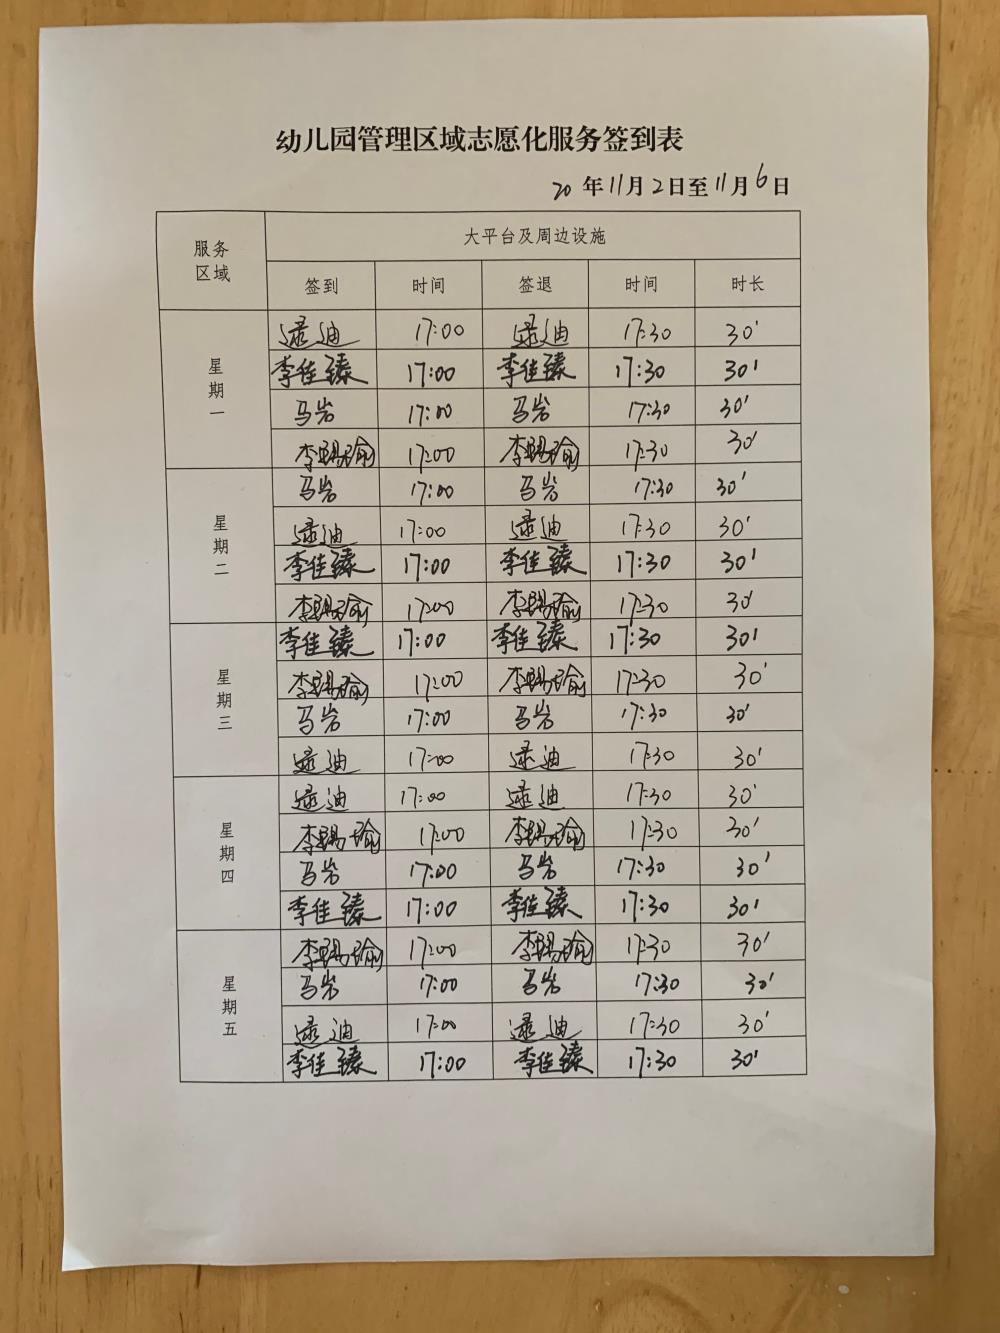 幼儿园管理区域志愿化服务签到表
20 年 11 月 2 日至 11 月 6 日
服务区域 大平台及周边设施
签到 时间 签退 时间 时长
星期一
逯迪 17:00 逯迪 17:30 30'
李佳臻 17:00 李佳臻 17:30 30'
马岩 17:00 马岩 17:30 30'
17:00 17:30 30'
星期二
马岩 17:00 马岩 17:30 30'
逯迪 17:00 逯迪 17:30 30'
李佳臻 17:00 李佳臻 17:30 30'
17:00 17:30 30'
星期三
李佳臻 17:00 李佳臻 17:30 30'
17:00 17:30 30'
马岩 17:00 马岩 17:30 30'
逯迪 17:00 逯迪 17:30 30'
星期四
逯迪 17:00 逯迪 17:30 30'
17:00 17:30 30'
马岩 17:00 马岩 17:30 30'
李佳臻 17:00 李佳臻 17:30 30'
星期五
17:00 17:30 30'
马岩 17:00 马岩 17:30 30'
逯迪 17:00 逯迪 17:30 30'
李佳臻 17:00 李佳臻 17:30 30'